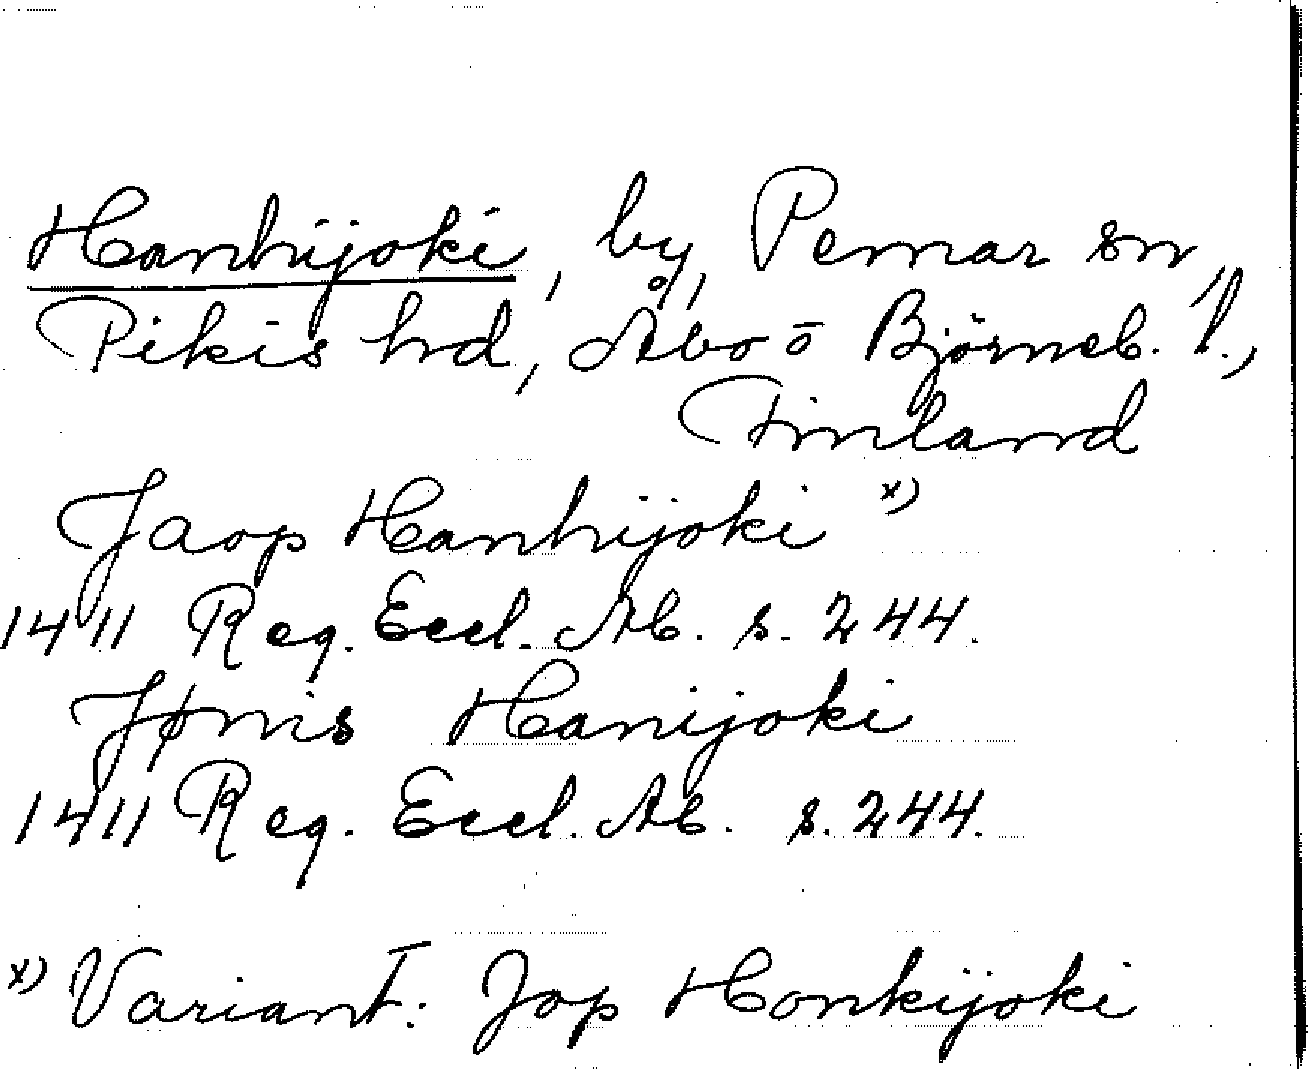 Hanhijoki, by, Pemar sn,
Pikis hd, Åbo o Björneb. l.,
Finland
Jaop Hanhijoki x)
1411 Reg. Eccl. Ab. s. 244.
Jønis Hanijoki
1411 Reg. Eccl. Ab. s. 244.
x) Variant: Jop Honkijoki